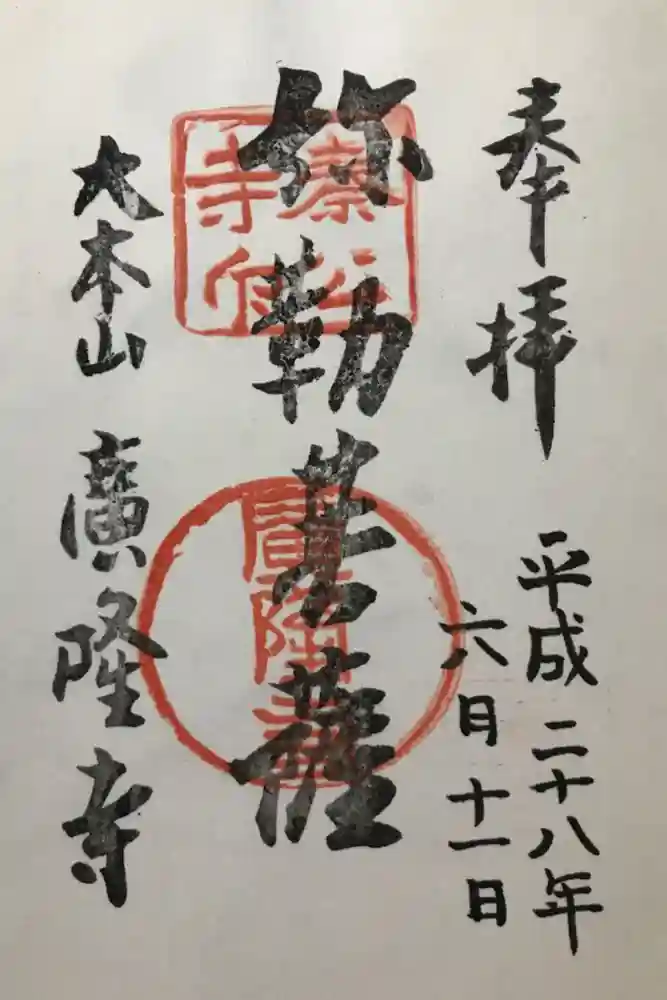 奉拝
平成二十八年
六月十一日
弥勒菩薩
大本山 廣隆寺
秦公
寺印